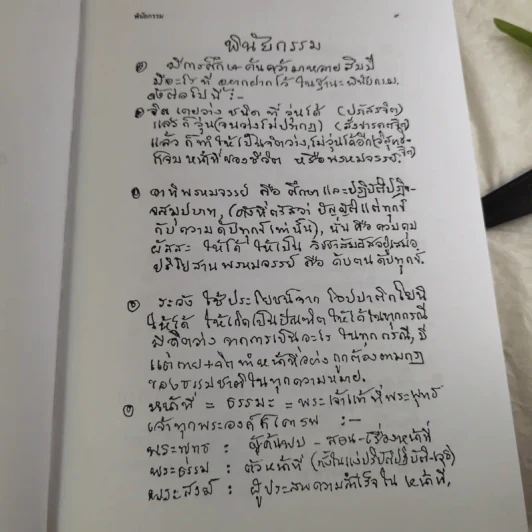 พินัยกรรม
พินัยกรรม
มีการศึกษาค้นคว้ามาหลายสิบปี
มีอะไรที่อยากฝากไว้ ในฐานะพินัยกรรม,
ดังต่อไปนี้ :-
จิตเดิมว่าง ชนิด ที่ วุ่นได้ (ปภัสสรจิต)
แล้ว ก็ ทำให้ เป็นจิตว่าง, ไม่วุ่นได้อีก
ก็จบ หน้าที่ ของชีวิต หรือ พรหมจรรย์.
๓ ทำพรหมจรรย์ คือ ศึกษา และปฏิบัติปฏิจ-
จสมุปบาท, (ดังที่ตรัสว่า บัญญัติแต่ทุกข์
กับ ความดับทุกข์เท่านั้น), นั่น คือ ควบคุม
ผัสสะ ให้ได้ ให้เป็น วิชชาสัมผัสอยู่เสมอ
ปริโยสาน พรหมจรรย์ คือ ดับตน ดับทุกข์.
ระวัง ใช้ประโยชน์จาก โอปปาติกโยนิ
ให้ได้ ให้เกิดเป็นบัณฑิต ให้ได้ในทุกกรณี
จากการเป็นอะไร ในทุกกรณี, มี
แต่ กาย+จิต ทำหน้าที่อย่าง ถูกต้องตามกฎ
ของธรรมชาติในทุกความหมาย.
หน้าที่ = ธรรมะ = พระเจ้าแท้ ที่พระพุทธ
เจ้าทุกพระองค์ก็เคารพ :-
พระพุทธ : ผู้ค้นพบ - สอน - เรื่องหน้าที่
พระธรรม : ตัวหน้าที่ (ทั้งในแง่ปริยัติปฏิบัติ
พระสงฆ์ : ผู้ประสพความสำเร็จใน หน้าที่,